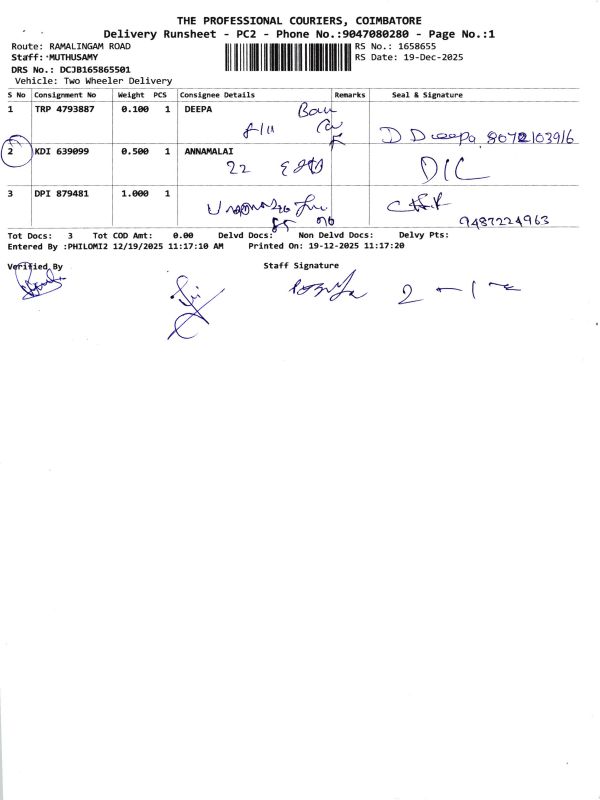 THE PROFESSIONAL COURIERS, COIMBATORE
Delivery Runsheet - PC2 - Phone No.:9047080280 - Page No.:1
Route: RAMALINGAM ROAD RS No.: 1658655
Staff: MUTHUSAMY RS Date: 19-Dec-2025
DRS No.: DCJB165865501
Vehicle: Two Wheeler Delivery
S No Consignment No Weight PCS Consignee Details Remarks Seal & Signature
1 TRP 4793887 0.100 1 DEEPA
D Deepa 8072103916
2 KDI 639099 0.500 1 ANNAMALAI
22 D/C
3 DPI 879481 1.000 1
9487224963
Tot Docs: 3 Tot COD Amt: 0.00 Delvd Docs: Non Delvd Docs: Delvy Pts:
Entered By :PHILOMI2 12/19/2025 11:17:10 AM Printed On: 19-12-2025 11:17:20
Verified By Staff Signature
2 - 1 -